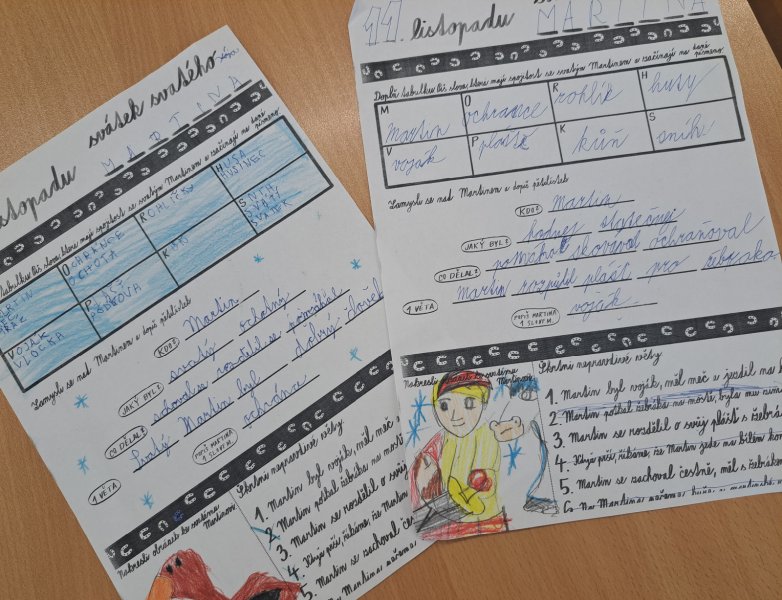 listopadu svátek svatého
MARTINA
tabulku
slova, která mají spojitost se svatým Martinem a začínají na dané
písmeno
O
OCHRÁNCE
OCHOTA
R
ROHLÍČKY
H
HUSA
HUSINEC
V
VOJÁK
VLOČKA
P
K
S
SNÍH
SVATÝ
SVÁTEK
Zamysli se nad Martinem a doplň pětilístek
KDO?
Martin
JAKÝ BYL?
svatý ochotný
CO DĚLAL?
schovával rozdělil se pomáhal
1 VĚTA
Svatý Martin byl dobrý člověk
POPIŠ MARTINA
1 SLOVEM
ochránce
Nakresli obrázek ke svatému
Martinovi
Škrtni nepravdivé věty
1. Martin byl voják, měl meč
2. Martin potkal žebráka na mostě
3. Martin se rozdělil o svůj
4. Když prší, říkáme, že Martin
5. Martin se zachoval
11. listopadu
MARTINA
Doplň tabulku
slova, která mají spojitost se svatým Martinem a začínají na dané
písmeno
M
martin
O
ochránce
R
rohlík
H
husy
V
voják
P
plášť
K
kůň
S
sníh
Zamysli se nad Martinem a doplň pětilístek
KDO?
Martin
JAKÝ BYL?
hodnej statečnej
CO DĚLAL?
pomáhal skovával ochraňoval
1 VĚTA
martin rozpůlil plášť pro žebráka
POPIŠ MARTINA
1 SLOVEM
voják
Nakresli obrázek ke svatému
Martinovi
Škrtni nepravdivé věty
1. Martin byl voják, měl meč a jezdil na
2. Martin potkal žebráka na mostě, byla mu zima
3. Martin se rozdělil o svůj plášť s
4. Když prší, říkáme, že Martin jede na bílém
5. Martin se zachoval čestně, měl s žebrákem
6. Na Martina pečeme